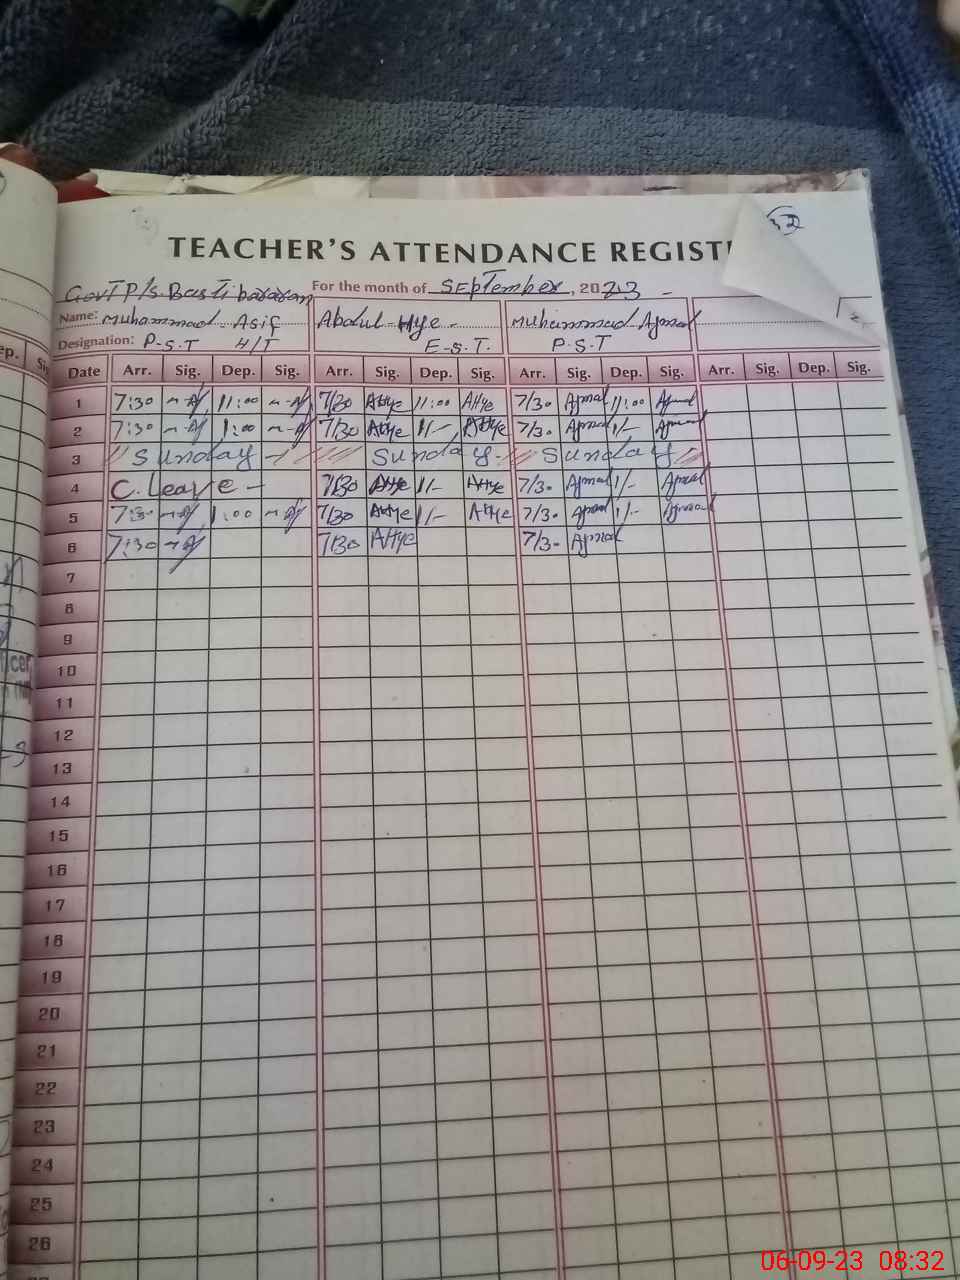 32
TEACHER'S ATTENDANCE REGIST
Govt P/s. Basti For the month of September, 2023
Name: Muhammad Asif Abdul Hye Muhammad Ajmal
Designation: P.S.T H/T E.S.T. P.S.T
ep. Sig
Date Arr. Sig. Dep. Sig. Arr. Sig. Dep. Sig. Arr. Sig. Dep. Sig. Arr. Sig. Dep. Sig.
1 7:30 11:00 7/30 AHye 11:00 AHye 7/30 Ajmal 11:00 Ajmal
2 7:30 1:00 7/30 AHye 1/- AHye 7/30 Ajmal 1/- Ajmal
3 Sunday Sunday Sunday
4 C. Leave 7/30 AHye 1/- AHye 7/30 Ajmal 1/- Ajmal
5 7:30 1:00 7/30 AHye 1/- AHye 7/30 Ajmal 1/- Ajmal
6 7:30 7/30 AHye 7/30 Ajmal
7
8
9
10
11
12
13
14
15
16
17
18
19
20
21
22
23
24
25
26
06-09-23 08:32